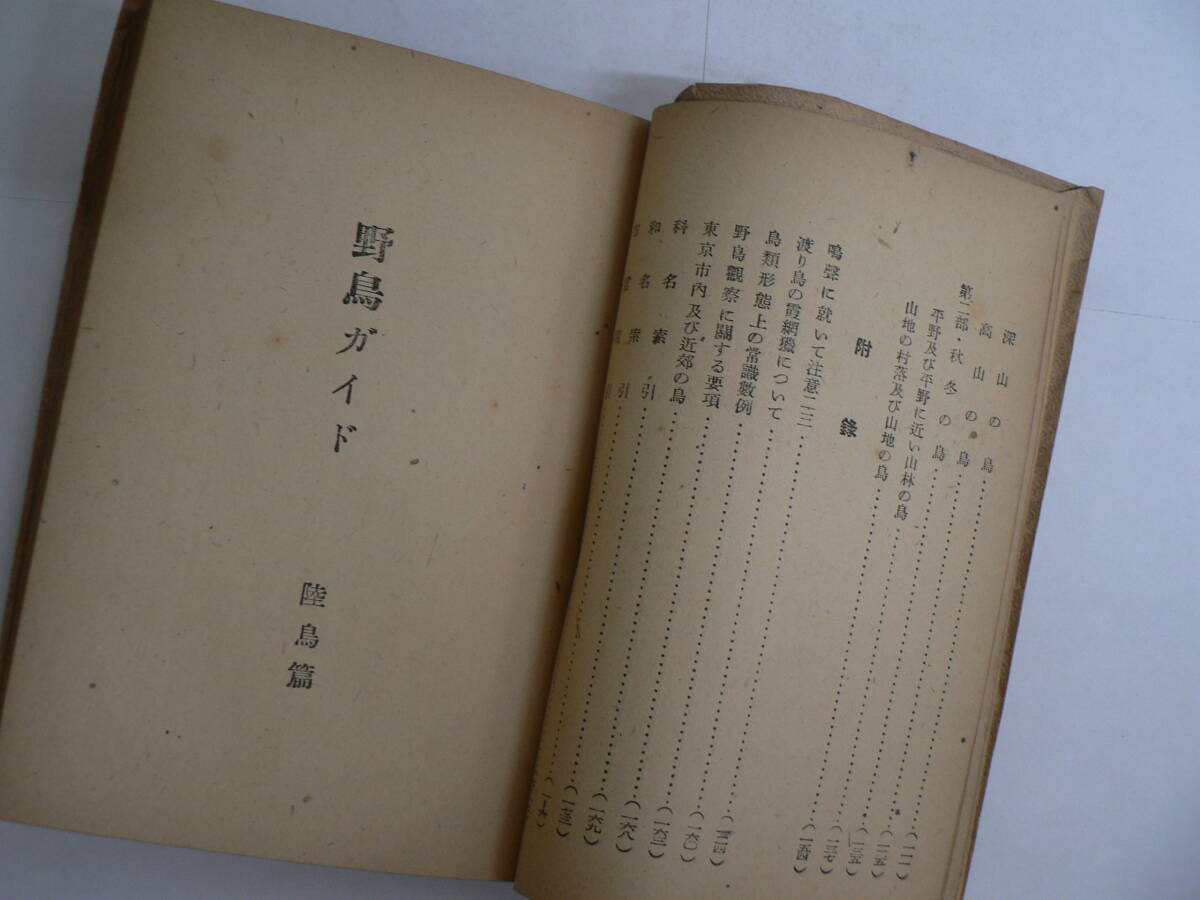 深山の鳥……(一一一)
高山の鳥……(一一五)
第二部・秋冬の鳥……(一三五)
平野及び平野に近い山林の鳥……(一三七)
山地の村落及び山地の鳥……(一五四)
附錄
鳴聲に就いて注意二三……
渡り鳥の霞網獵について……(一六〇)
鳥類形態上の常識數例……(一六三)
野鳥觀察に關する要項……(一六八)
東京市内及び近郊の鳥……(一六九)
科名索引……(一七三)
和名索引……
野鳥ガイド
陸鳥篇